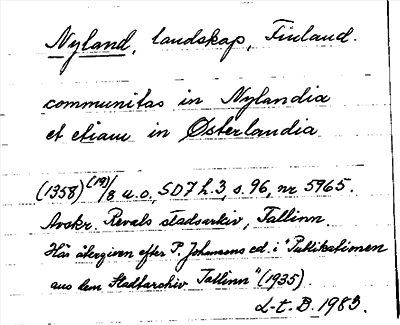 Nyland, landskap, Finland.
communitas in Nylandia
et etiam in Østerlandia
(1358) (19)/8 u.o., SD 7 h.3, s. 96, nr 5965.
Avskr. Revals stadsarkiv, Tallinn.
Här återgiven efter P. Johansens ed. i "Publikationen
aus dem Stadtarchiv Tallinn" (1935).
L-t. B. 1983.